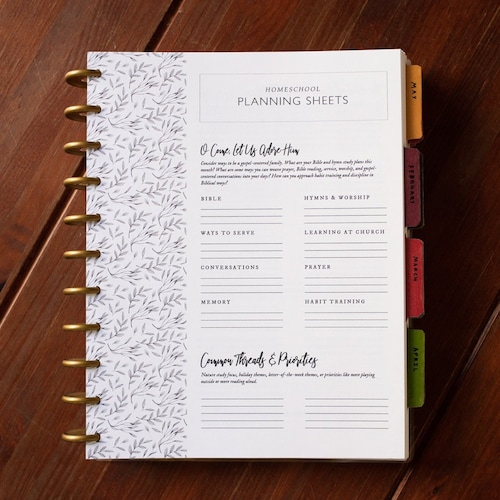 HOMESCHOOL
PLANNING SHEETS
O Come, Let Us Adore Him
Consider ways to be a gospel-centered family. What are your Bible and hymn study plans this
month? What are some ways you can weave prayer, Bible reading, service, worship, and gospel-
centered conversations into your day? How can you approach habit training and discipline in
Biblical ways?
BIBLE
HYMNS & WORSHIP
WAYS TO SERVE
LEARNING AT CHURCH
CONVERSATIONS
PRAYER
MEMORY
HABIT TRAINING
Common Threads & Priorities
Nature study focus, holiday themes, letter-of-the-week themes, or priorities like more playing
outside or more reading aloud.
MAY
FEBRUARY
MARCH
APRIL